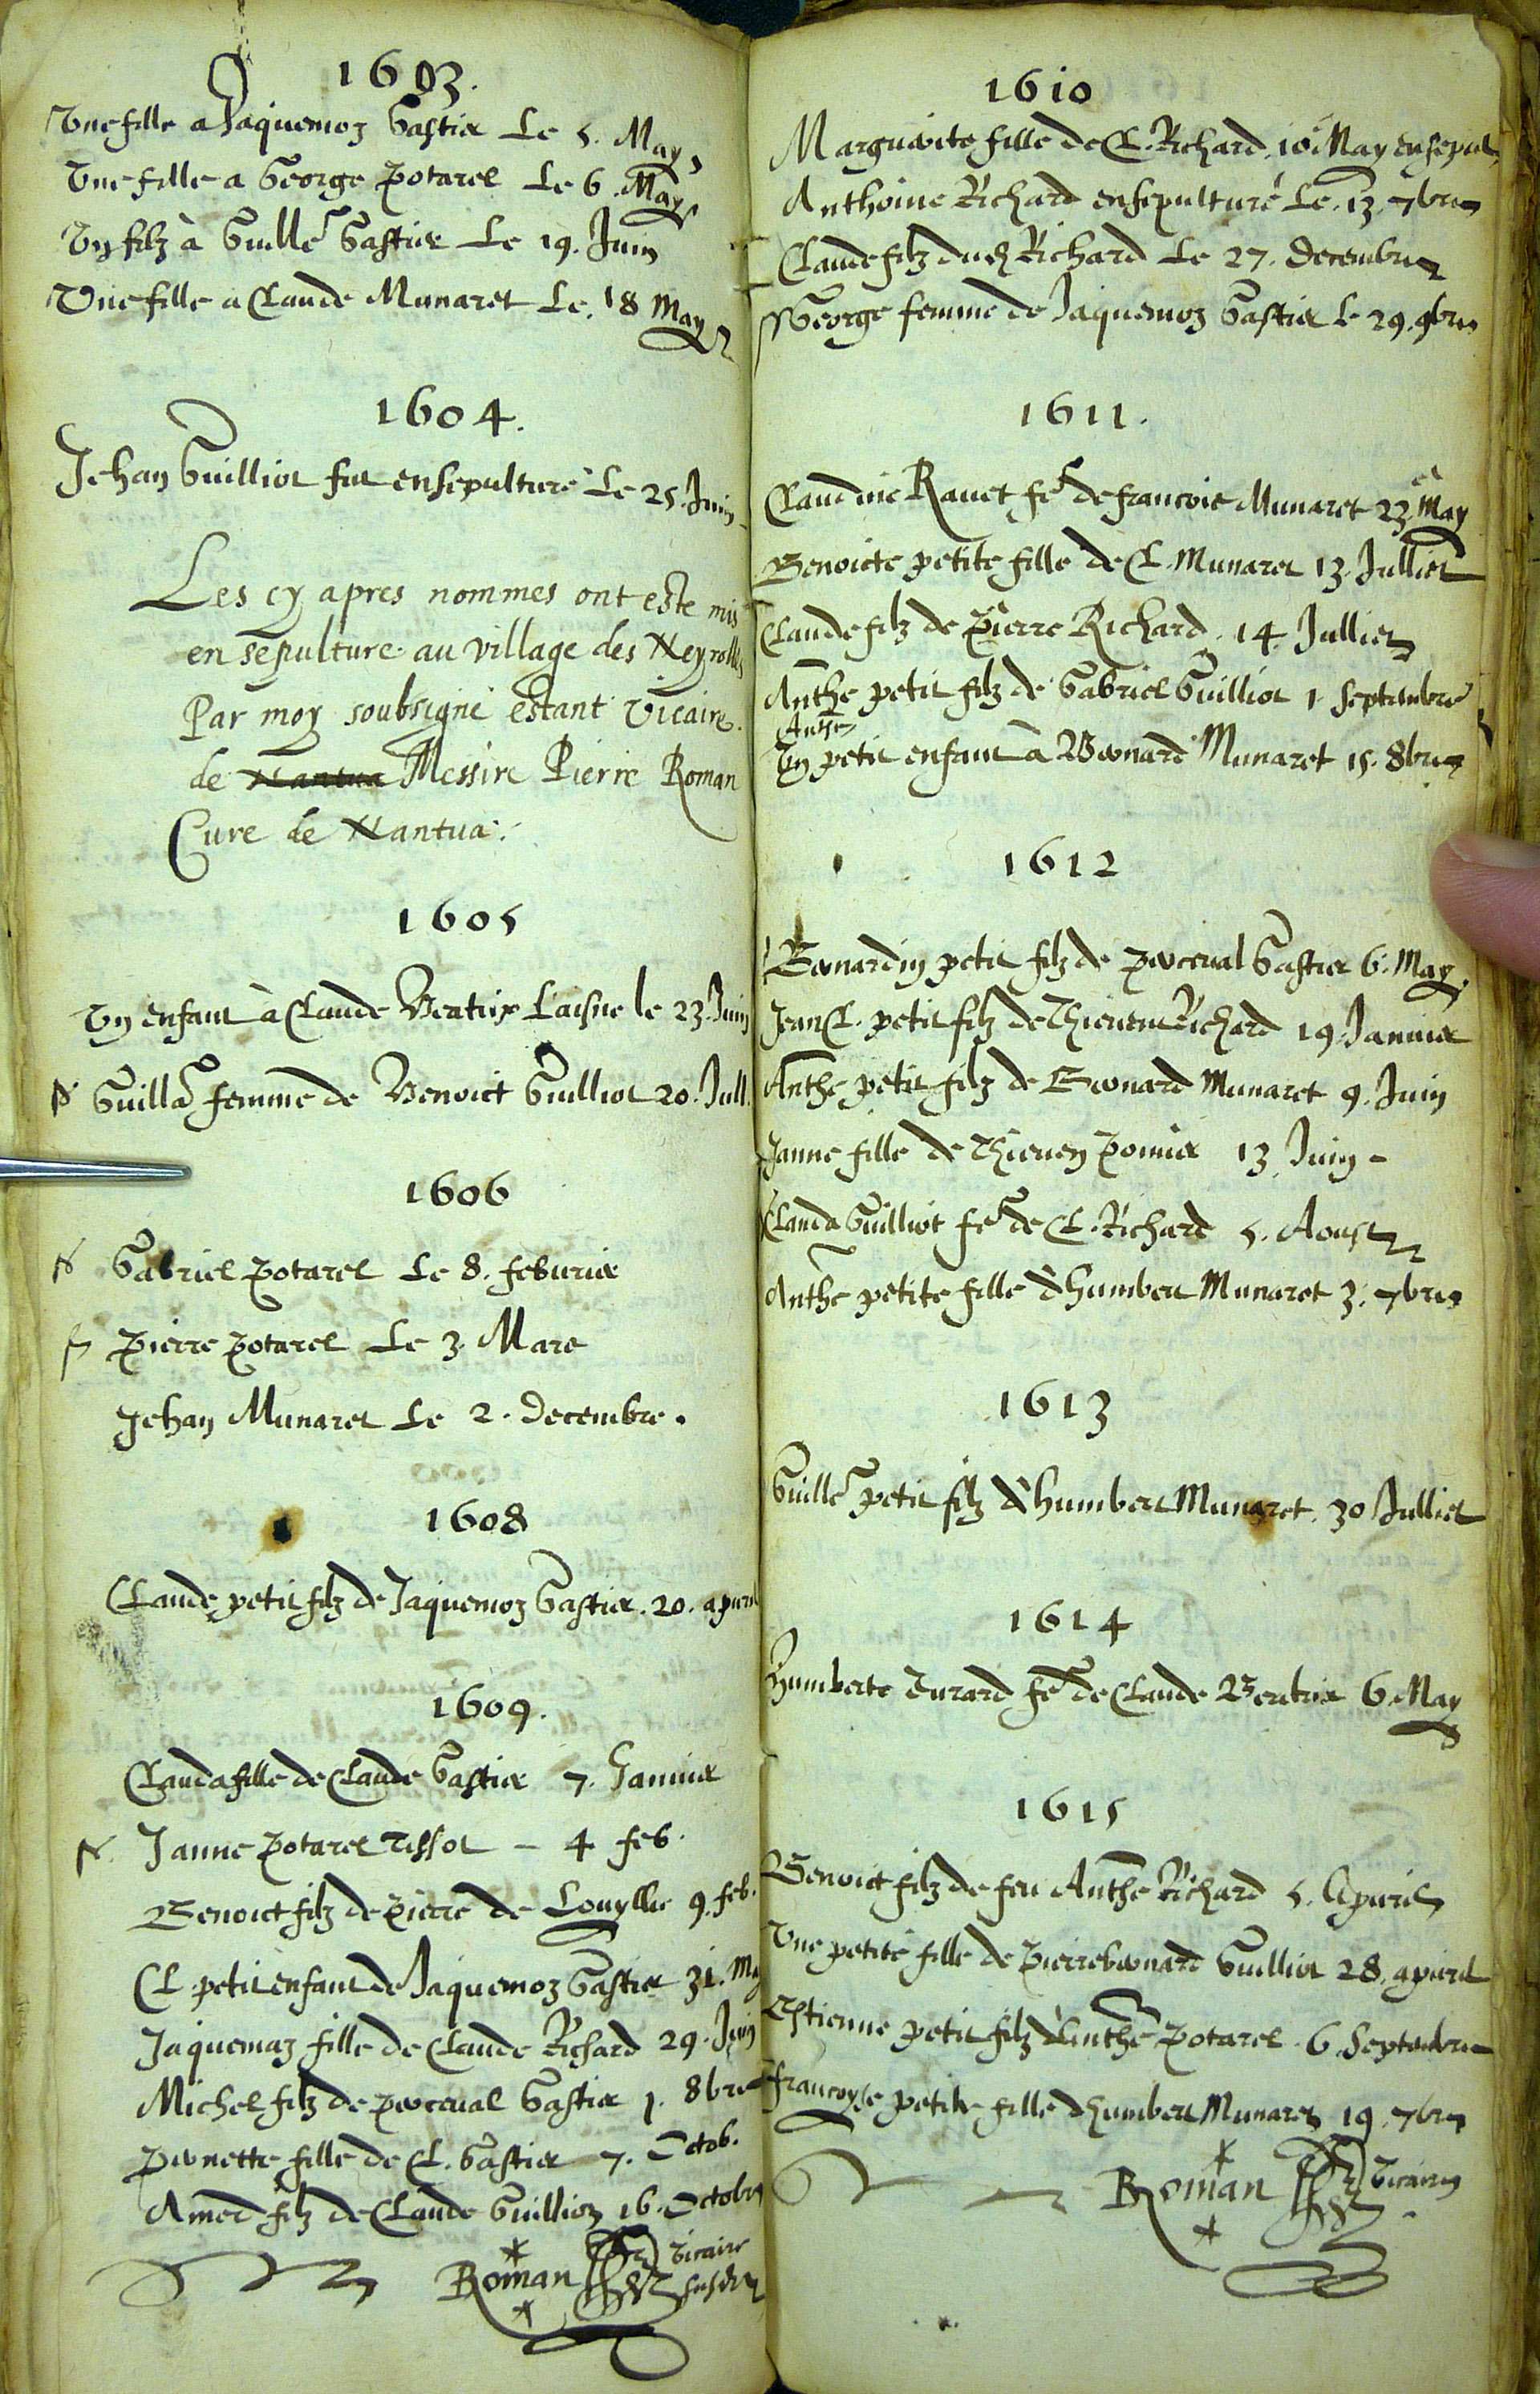 1603.
Une fille a Jaquemoz Gastier Le 5. May
Une fille a George Potarel Le 6. May
Un filz à Guille Gastier Le 19. Juin
Une fille a Claude Munaret Le. 18 May
1604.
Jehan Guilliot fut ensepulturé Le 25. Juin
Les cy apres nommes ont este mis
en sepulture au village des Neyrolles
Par moy soubsigne estant Vicaire
de Nantua Messire Pierre Roman
Cure de Nantua.
1605
Un enfant à Claude Beatrix Laisne le 23. Juin
Guilla femme de Benoict Guilliot 20. Jull.
1606
Gabriel Potarel Le 8. feburier
Pierre Potarel Le 3. Mars
Jehan Munaret Le 2. Decembre.
1608
Claude petit filz de Jaquemoz Gastier. 20. apuril
1609.
Clauda fille de Claude Gastier 7. Januier
Janne Potarel Tissot - 4 feb.
Benoict filz de Pierre de Louyllie 9. feb.
Cl. petit enfant de Jaquemoz Gastier 31. May
Jaquemaz fille de Claude Richard 29. Juin
Michel filz de Perceual Gastier 1. 8bre
Pernette fille de Cl. Gastier 7. Octob.
Amed filz de Claude Guillioz 16. Octobre
Roman Vicaire
susdit
1610
Marguerite fille de Cl. Richard. 10 May ensepul
Anthoine Richard ensepulturé Le. 13. 7bre
Claude filz dud Richard Le 27. Decembre
George femme de Jaquemoz Gastier le 29. 9bre
1611.
Claudine Rauet fe de francois Munaret 23 May
Benoicte petite fille de Cl. Munaret 13. Julliet
Claude filz de Pierre Richard. 14. Julliet
Anthe petit filz de Gabriel Guilliot 1. Septembre
Anthe
Un petit enfant à Bernard Munaret 15. 8bre
1612
Bernardin petit filz de Perceual Gastier 6. May.
Jean Cl. petit filz de Thieuent Richard 19. Januier
Anthe petit filz de Bernard Munaret 9. Juin
Janne fille de Thieuen Ponnier 13. Juin -
Clauda Guilliot fe de Cl. Richard 5. Aoust
Anthe petite fille d'humbert Munaret 3. 7bre
1613
Guille petit filz d'humbert Munaret. 30 Julliet
1614
Humberte Eurard fe de Claude Beatrix 6. May
1615
Benoict filz de feu Anthe Richard 5. Apuril
Une petite fille de Pierrebernard Guilliot 28. apuril
Estienne petit filz d'Anthe Potarel. 6. Septembre
francoyse petite fille d'humbert Munaret 19. 7bre
Roman Vicaire